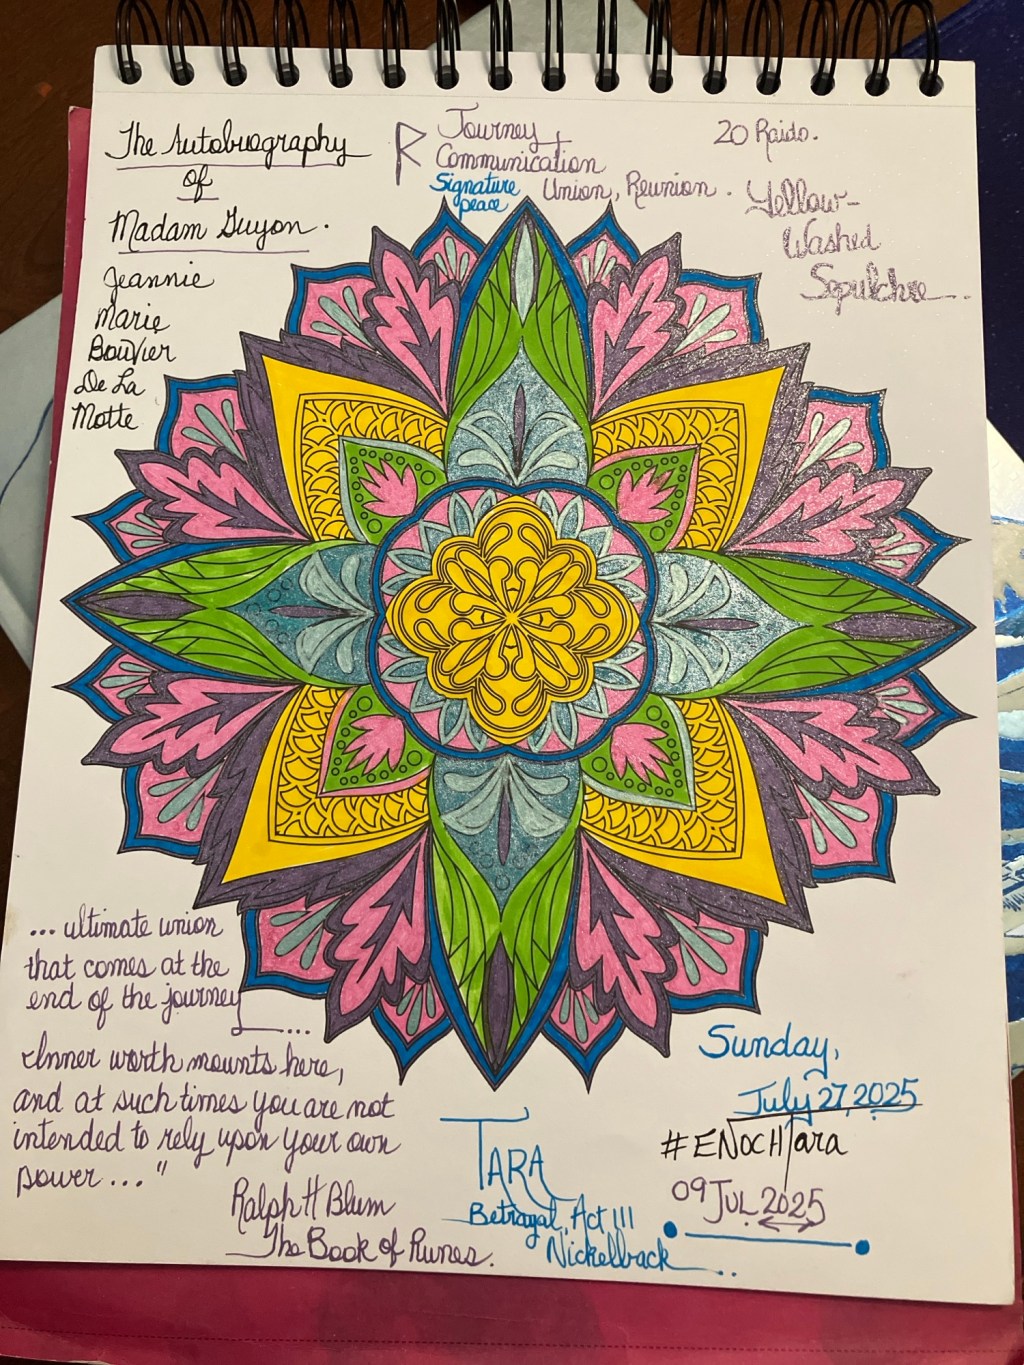 The Autobiography
of
Madam Guyon.
Jeannie
Marie
Bouvier
De La
Motte
R Journey
Communication
Signature
peace
Union, Reunion.
20 Raido.
Yellow-
Washed
Sepulchre...
... ultimate union
that comes at the
end of the journey
....
Inner worth mounts here,
and at such times you are not
intended to rely upon your own
power..."
Ralph H Blum
The Book of Runes.
TARA
Betrayal, Act III
Nickelback...
Sunday,
July 27, 2025
#ENochTara
09 JUL 2025